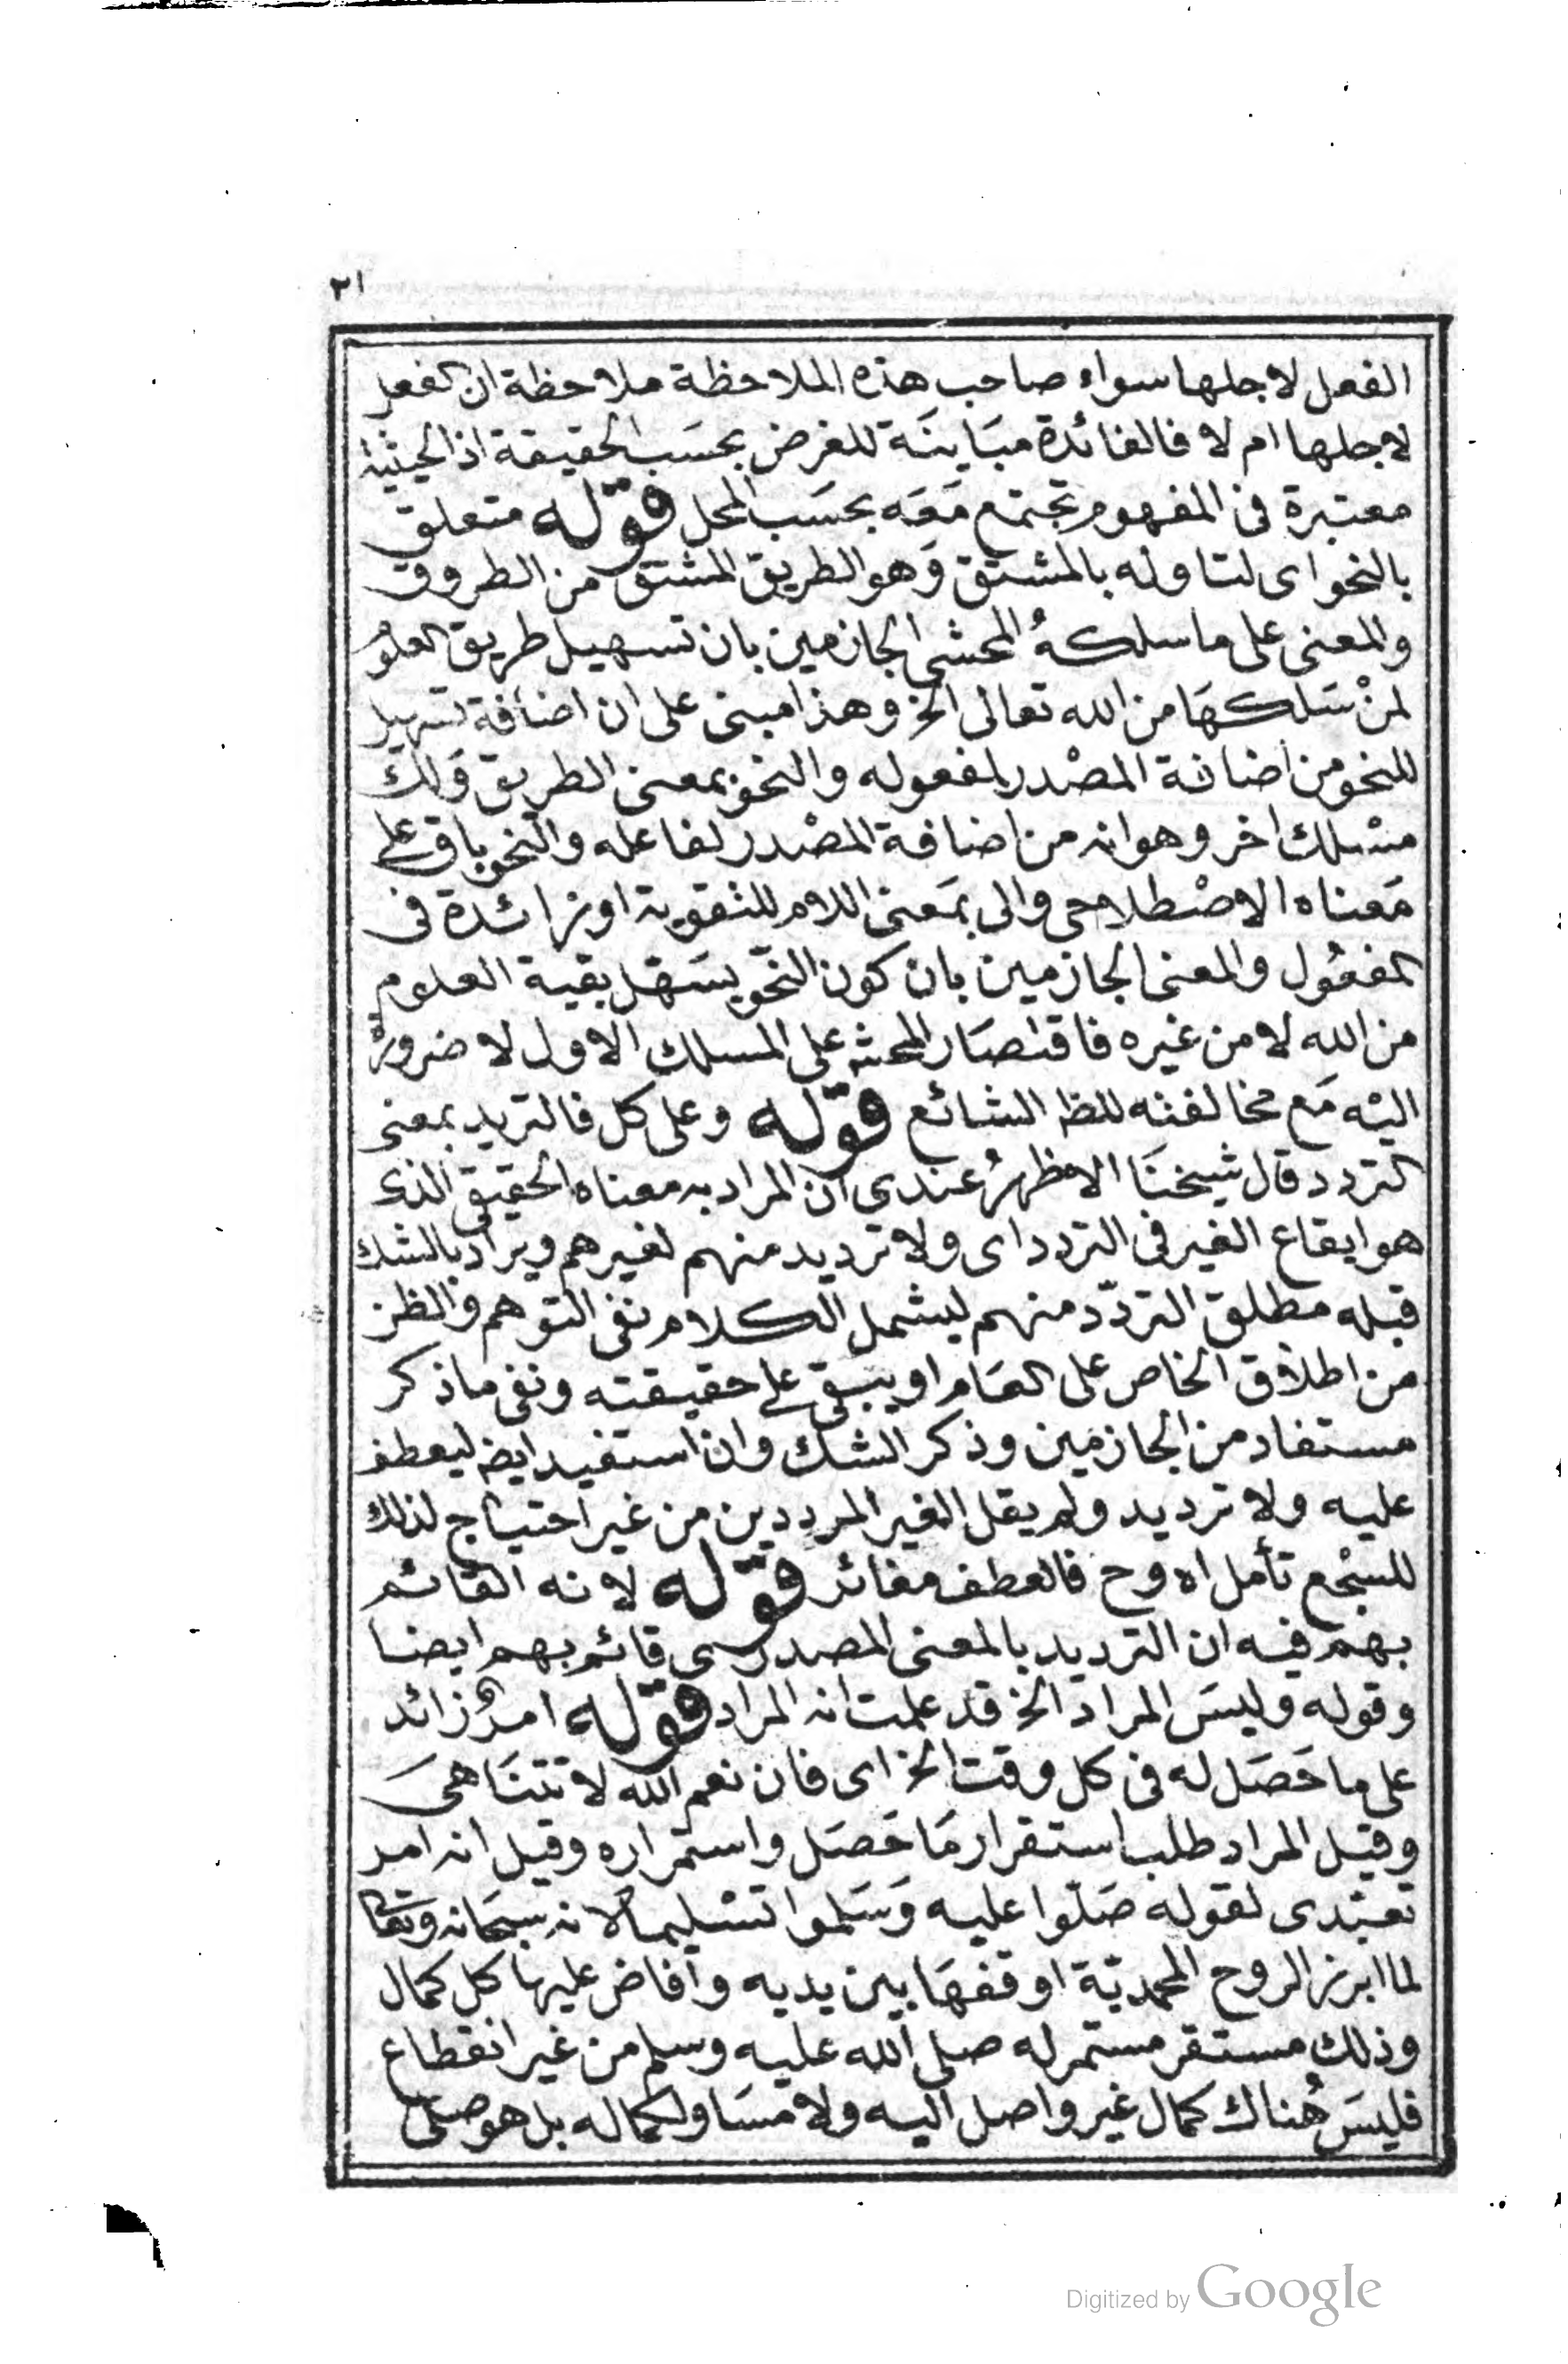 ٢١
الفعل لاجلها سواء صاحب هذه الملاحظة ملاحظة ان الفعل
لاجلها ام لا فالفائدة مبَاينَة للغرض بحسَب الحقيقة اذ الحيثية
معتبرة فى المفهوم تجتمع مَعَه بحسَب المحل قوّله متعلق
بالنحو اى لتاوله بالمشتق وَهو الطريق المشتق من الطروق
والمعنى على ما سلكهُ المحشى الجازمين بان تسهيل طريق العلوم
لمنْ سَلكهَا من الله تعالى الخ وهذا مبنى على ان اضافة تسهيل
للنحو من اضافة المصْدر لمفعوله والنحو بمعنى الطريق وَلك
مسْلك اخر وهو انه من اضافة المصْدر لفاعله والنحو باق على
مَعناه الاصْطلاحى والى بمَعنى اللام للتقوية او زائدة فى
المفعُول والمعنى الجازمين بان كون النحّو يسَهل بقية العلوم
من الله لا من غيره فاقتصَار المحشى على المسلك الاول لا ضرورة
اليْه مَع مخالفته للظ الشائع قوّله وعلى كل فالتريد بمعنى
التردد قال شيخنَا الاظهرُ عندى ان المراد به معناه الحقيقى الذى
هو ايقاع الغير فى التردد اى ولا ترديد منهم لغيرهم ويراد بالشك
قبله مطلق التردّد منهم ليشمل الكلام نفى التوهم والظن
من اطلاق الخاص على العَام او يبقى على حقيقته ونفى ما ذكر
مستفاد من الجازمين وذكر الشك وان استفيد ايضه ليعطف
عليه ولا ترديد ولم يقل الغير المرددين من غير احتياج لذلك
للسجْع تأمل اه وح فالعطف مغائر قوّله لانه القائم
بهم فيه ان الترديد بالمعنى المصدرى قائم بهم ايضا
وقوله وليسَ المراد الخ قد علمت انه المراد قوّله امر زائد
على ما حَصَل له فى كل وقت الخ اى فان نعم الله لا تتنَاهىَ
وقيل المراد طلب استقرار مَا حَصَل واستمراره وقيل انه امر
تعبّدى لقوله صَلّوا عليه وَسَلموا تسْليما لانه سبحَانه وتعالى
لما ابرز الروح المحمديّة اوقفهَا بين يديه وافاض عليها كل كمال
وذلك مستقر مستمر له صلى الله عليه وسلم من غير انقطاع
فليسَ هُناك كمال غير واصل اليه ولا مسَاو لكماله بل هو صلى
Digitized by Google